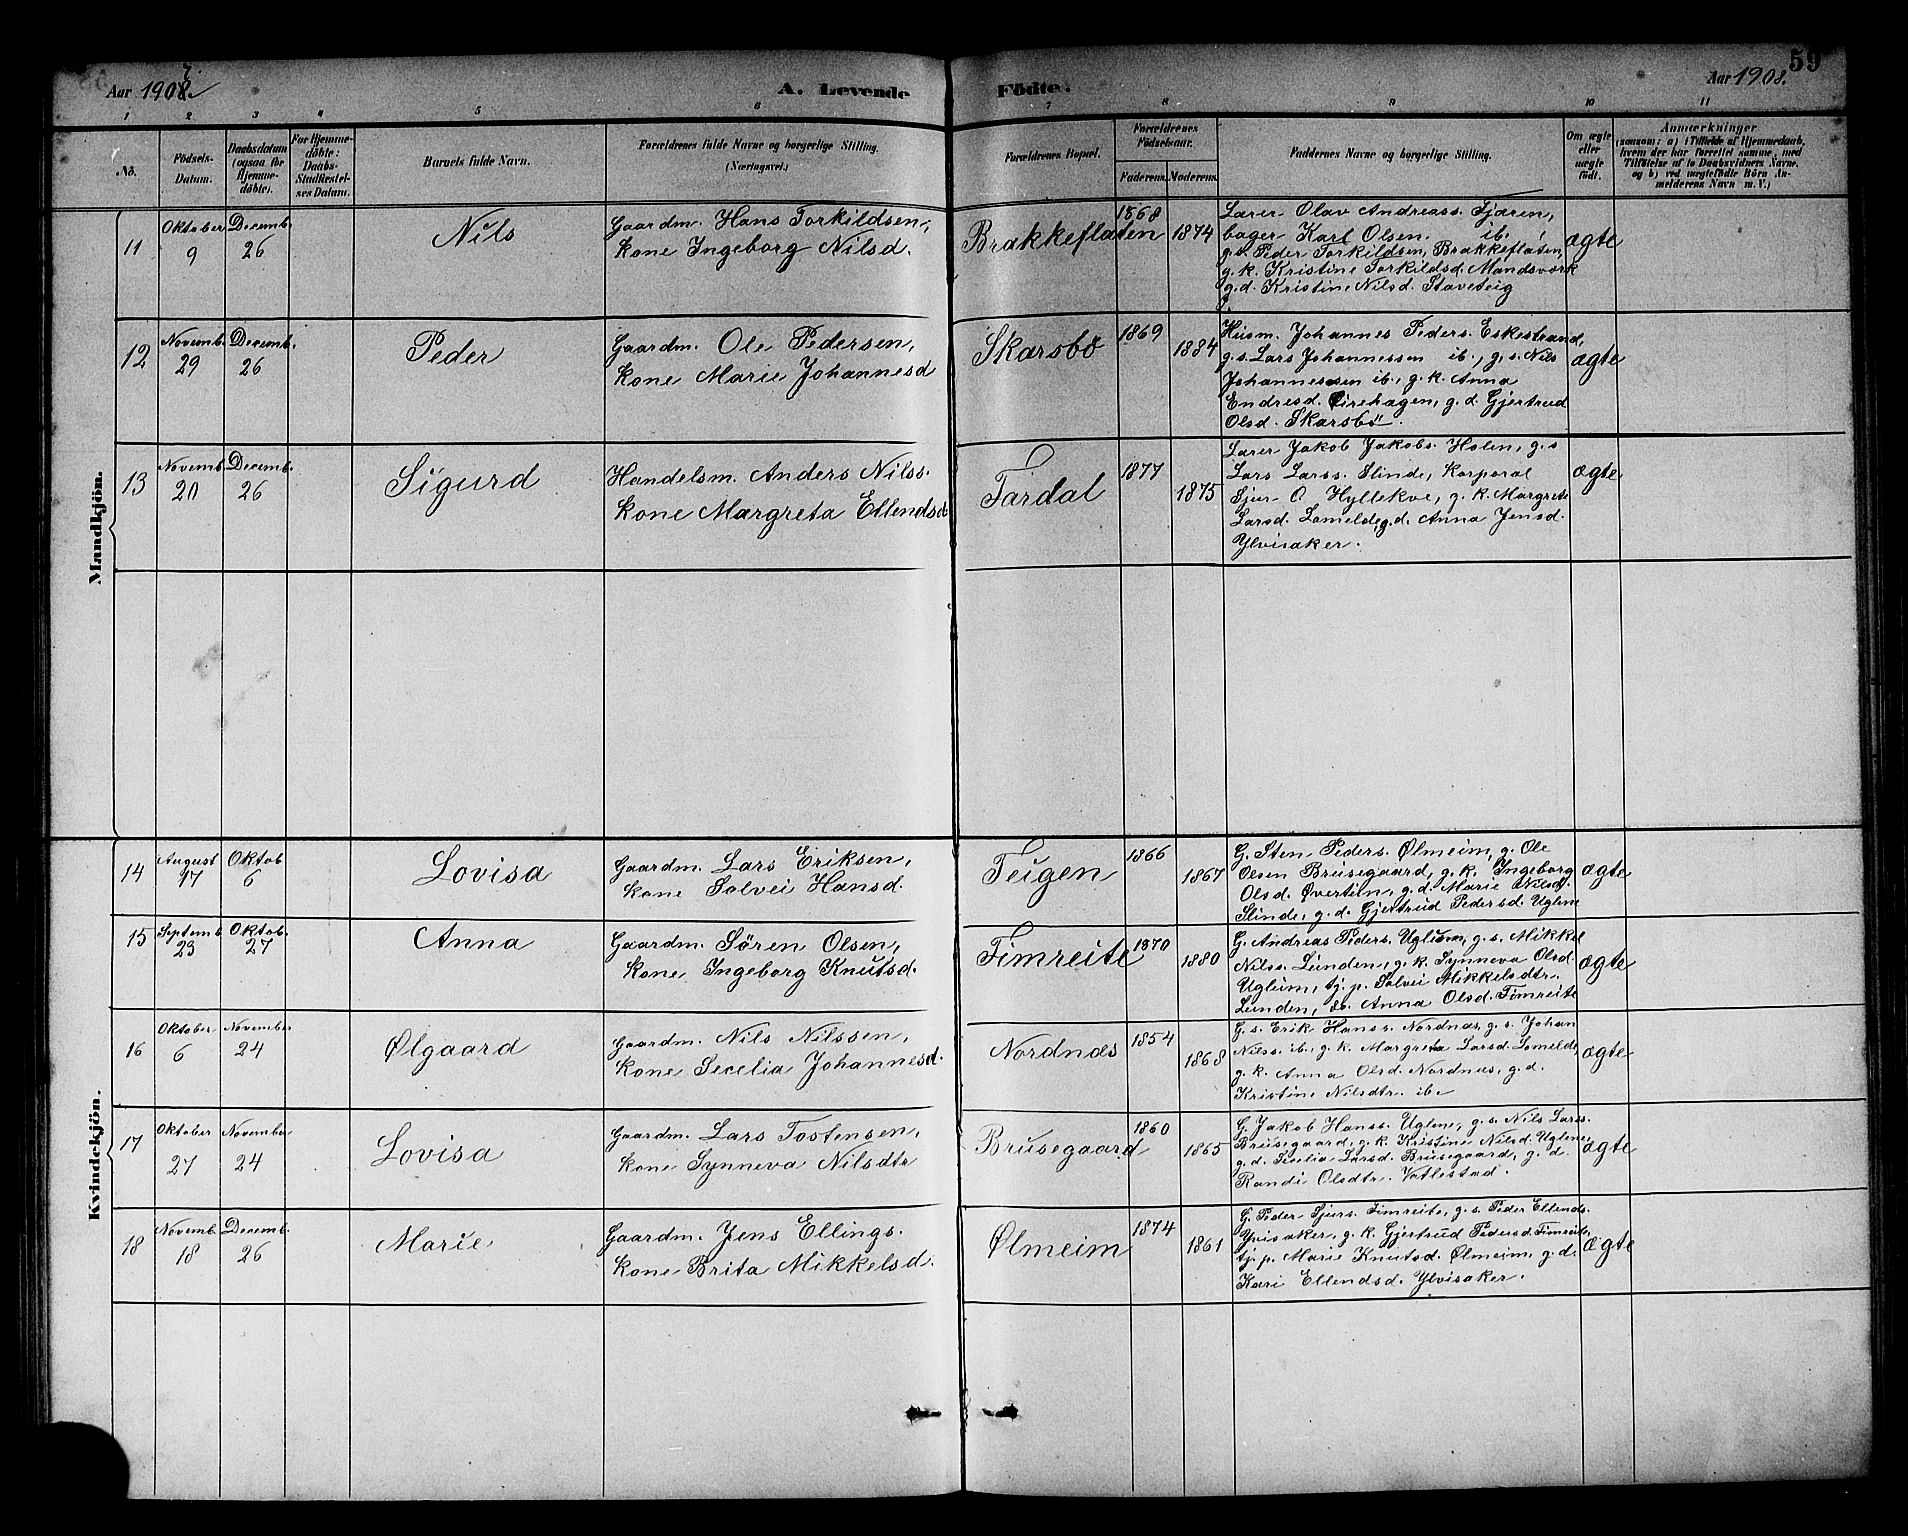 7.
Aar 1908.
A. Levende
Födte.
Aar 1908.
59
1 2 3 4 5 6 7 8 9 10 11
No.
Födsels-
Datum.
Daabsdatum
(ogsaa for
Hjemme-
döbte).
For Hjemme-
döbte:
Daabs-
Stadfæstel-
ses Datum.
Barnets fulde Navn.
Forældrenes fulde Navne og borgerlige Stilling.
(Næringsvei.)
Forældrenes Bopæl.
Forældrenes
Födselsaar.
Faderens. Moderens.
Faddernes Navne og borgerlige Stilling.
Om ægte
eller
uægte
födt.
Anmærkninger
(saasom: a) i Tilfælde af Hjemmedaab,
hvem der har forrettet samme, med
Tilföielse af to Daabsvidners Navne,
og b) ved uægtefödte Börn An-
melderens Navn m. V.)
Mandkjön.
11
Oktober
9
Decemb.
26
Nils
Gaardm. Hans Torkildsen,
kone Ingeborg Nilsd.
Brakkefláten
1868
1874
Lærer Olav Andreass. Fjæren,
bager Karl Olsen ib.
g.s. Peder Torkildsen, Brakkeflaten,
g. k. Kristine Torkildsd. Mandsverk
g.d. Kristine Nilsd. Staveteig
ægte
12
Novemb.
29
Decemb.
26
Peder
Gaardm. Ole Pedersen,
kone Marie Johannesd
Skarsbö
1869
1884
Husm. Johannes Peders. Eskestrand,
g.s. Lars Johannessen ib., g.s. Nils
Johannessen ib., g. k. Anna
Endresd. Eirehagen, g. d. Gjertrud
Olsd. Skarsbö.
ægte
13
Novemb.
20
Decemb.
26
Sigurd
Handelsm. Anders Nilss.
kone Margreta Ellendsd
Tardal
1877
1875
Lærer Jakob Jakobs. Holen, g. s
Lars Larss. Slinde, Korporal
Sjur O. Hyllekve, g. k. Margrete
Larsd. Lomelde, g.d. Anna Jensd.
Ylvisaker.
ægte
Kvindekjön.
14
August
17
Oktob
6
Lovisa
Gaardm. Lars Eriksen,
kone Solvei Hansd.
Teigen
1866
1867
G. Sten Peders. Ølmeim, g. Ole
Olsen Brusegaard, g. k. Ingeborg
Olsd. Øvertiln, g. d. Marie Nilsd.
Slinde, g. d. Gjertrud Pedersd. Uglum
ægte
15
Septemb
23
Oktob.
27
Anna
Gaardm. Sören Olsen,
kone Ingeborg Knutsd.
Timreite
1870
1880
G. Andreas Peders. Uglum, g. s. Mikkel
Nilss. Lunden, g. k. Synneva Olsd
Uglum, tj. p. Solvei Mikkelsdtr.
Lunden, do. Anna Olsd. Timreite
ægte
16
Oktober
6
November
24
Ølgaard
Gaardm. Nils Nilssen,
kone Secelia Johannesd.
Nordnæs
1854
1868
G. s. Erik Hanss. Nordnæs, g. s. Johan
Nilss. ib., g. k. Margreta Larsd. Lomelde,
g. k. Anna Olsd. Nordnæs, g. d.
Kristine Nilsdtr. ib.
ægte
17
Oktober
27
November
24
Lovisa
Gaardm. Lars Tostensen,
kone Synneva Nilsdtr
Brusegaard
1860
1865
G. Jakob Hanss. Uglene, g. s. Nils Larss.
Brusegaard, g. k. Kristine Nilsd. Uglene,
g. d. Secelia Larsd. Brusegaard, g. d.
Randi Olsdtr. Vatlestad.
ægte
18
Novemb.
18
Decemb.
26
Marie
Gaardm. Jens Ellings.
kone Brita Mikkelsd.
Ølmeim
1874
1861
G. Peder Sjurs. Timreite, g. s. Peder Ellends.
Ylvisaker, g. k. Gjertrud Pedersd. Timreite,
tj. p. Marie Knutsd. Ølmeim, g. d.
Kari Ellendsd. Ylvisaker.
ægte